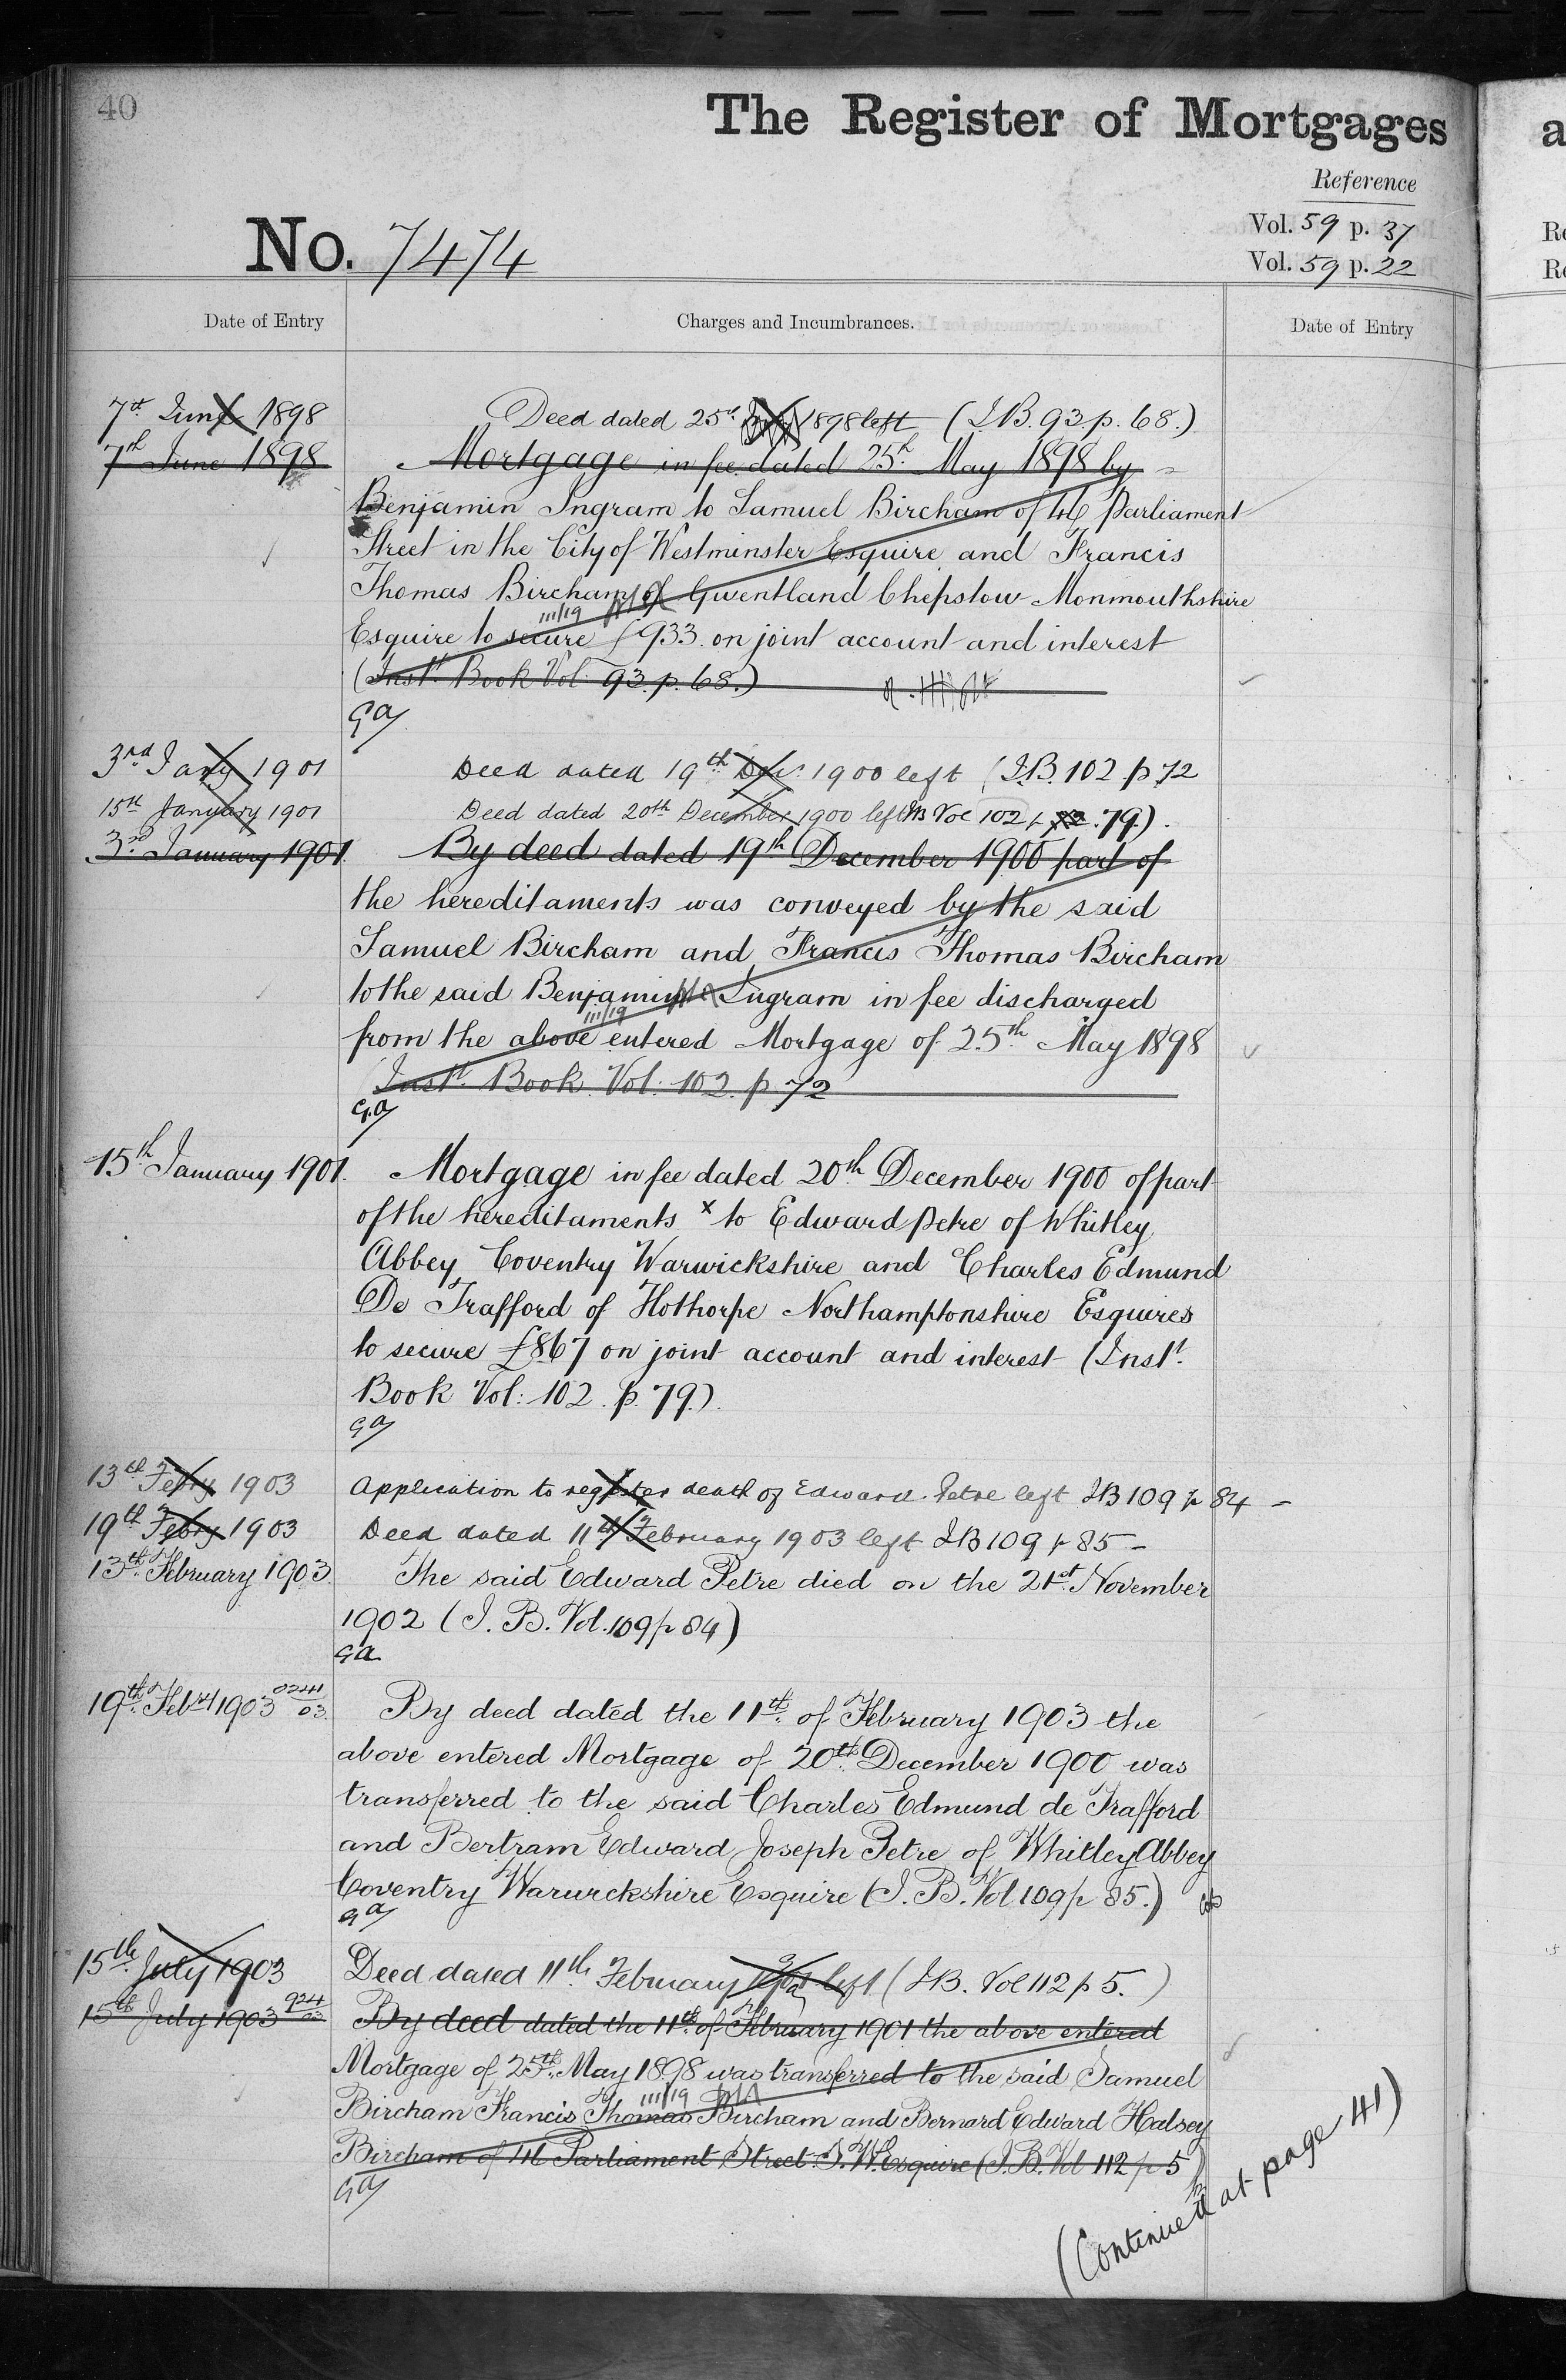 40
The Register of Mortgages
Reference
Vol. 59 p. 37
Vol. 59 p. 22
No. 7474
Date of Entry
Charges and Incumbrances.
Date of Entry
7th June 1898 Deed dated 25th 1898 left (I.B. 93 p. 68.)
7th June 1898 Mortgage in fee dated 25th May 1898 by
Benjamin Ingram to Samuel Bircham of 46 Parliament
Street in the City of Westminster Esquire and Francis
Thomas Bircham of Gwentland Chepstow Monmouthshire
111/19
Esquire to secure £933 on joint account and interest
(Inst. Book Vol 93. p. 68.)
GA
3rd Jany 1901 Deed dated 19th Decr. 1900 left (I.B. 102 p 72
15th January 1901 Deed dated 20th December 1900 left IB Vol 102 p 79).
3rd January 1901. By deed dated 19th December 1900 part of
the hereditaments was conveyed by the said
Samuel Bircham and Francis Thomas Bircham
to the said Benjamin Ingram in fee discharged
111/19
from the above entered Mortgage of 25th May 1898
(Inst. Book Vol: 102. p. 72
GA
15th January 1901. Mortgage in fee dated 20th December 1900 of part
of the hereditaments x to Edward Petre of Whitley
Abbey Coventry Warwickshire and Charles Edmund
De Trafford of Hothorpe Northamptonshire Esquires
to secure £867 on joint account and interest (Inst.
Book Vol: 102. p. 79.).
GA
13th Febry 1903 Application to register death of Edward Petre left IB 109 p 84 -
19th Febry 1903 Deed dated 11th February 1903 left IB 109 p 85 -
13th February 1903. The said Edward Petre died on the 21st November
1902 (I. B. Vol. 109 p 84)
GA
19th Febry 1903 0241/03. By deed dated the 11th of February 1903 the
above entered Mortgage of 20th December 1900 was
transferred to the said Charles Edmund de Trafford
and Bertram Edward Joseph Petre of Whitley Abbey
Coventry Warwickshire Esquire (I. B. Vol 109 p 85.)
GA
15th July 1903 Deed dated 11th February left (I.B. Vol 112 p 5.)
15th July 1903 924/03 By deed dated the 11th of February 1901 the above entered
Mortgage of 25th May 1898 was transferred to the said Samuel
111/19
Bircham Francis Thomas Bircham and Bernard Edward Halsey
Bircham of 46 Parliament Street S.W. Esquire (I.B. Vol 112 p 5)
GA
(Continued at page 41)